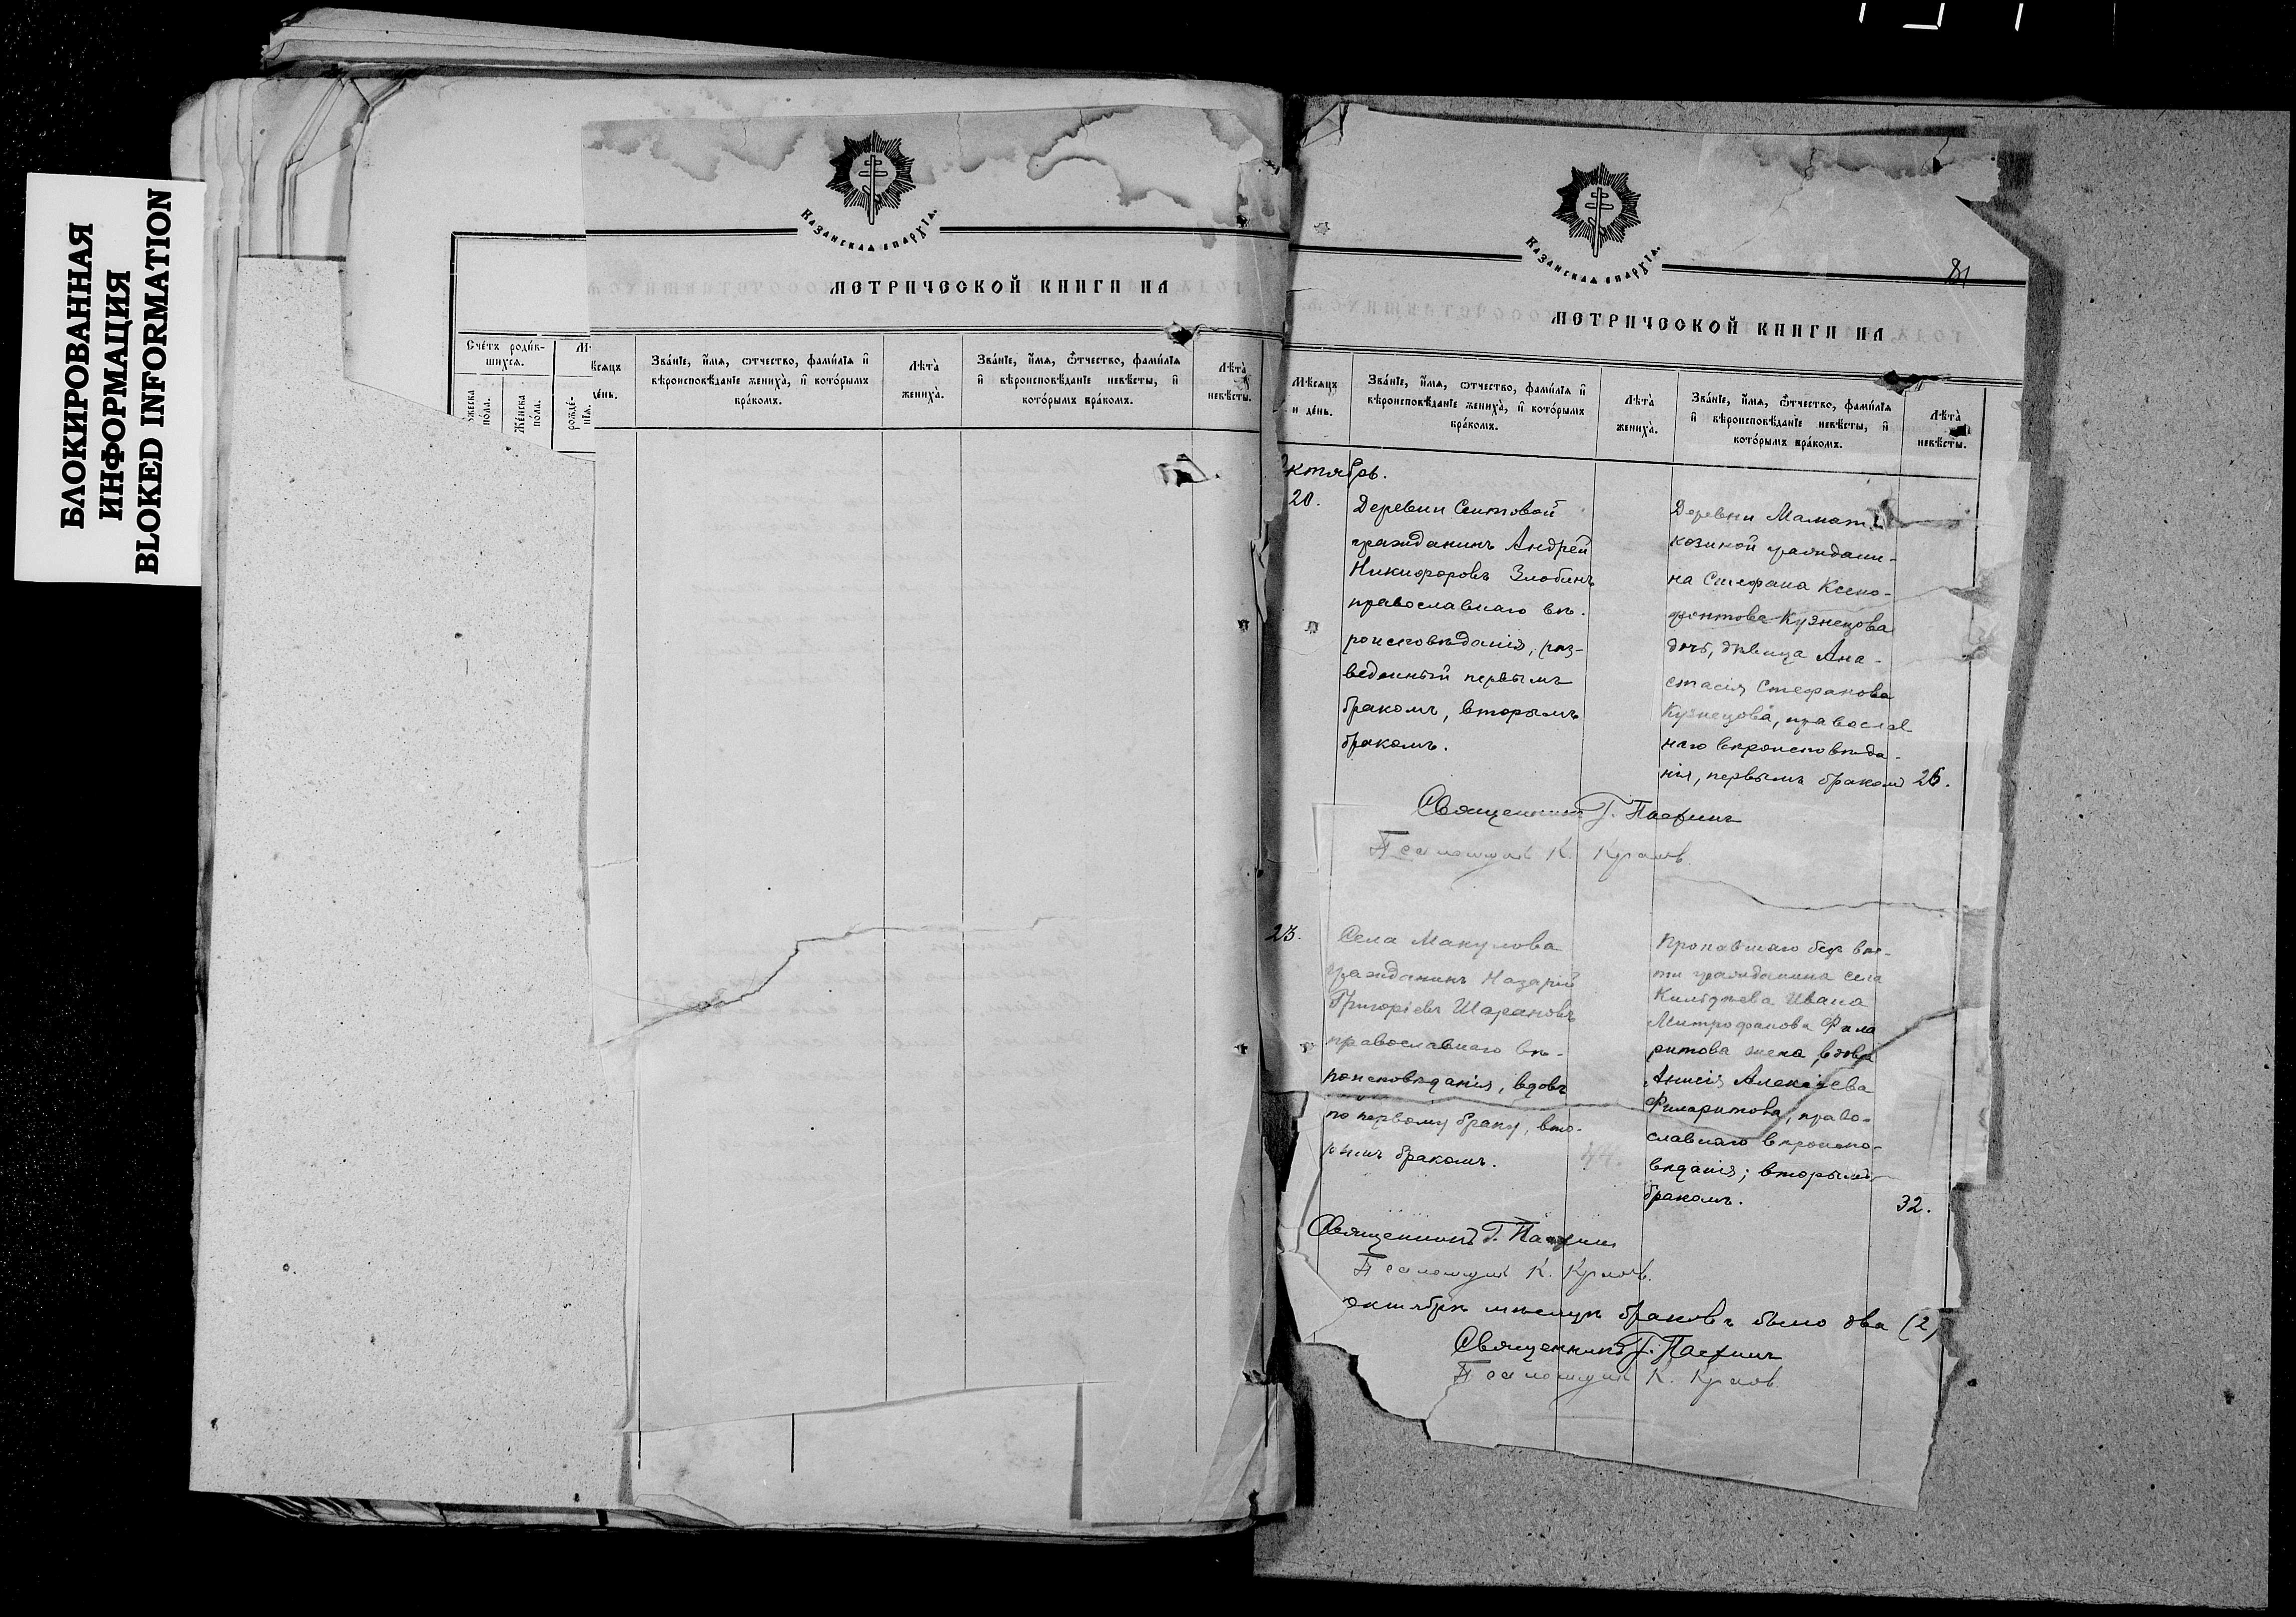 БЛОКИРОВАННАЯ
ИНФОРМАЦИЯ
BLOKED INFORMATION
Казанская епархїа.
МЕТРИЧЕСКОЙ КНИГИ НА
Счетъ родив-
шихся.
пола.
Женска
пола.
рожде-
нїя.
день.
Званїе, имя, отчество, фамилїя и
вѣроисповѣданїе жениха, и которымъ
бракомъ.
Лѣта
жениха.
Званїе, имя, отчество, фамилїя
и вѣроисповѣданїе невѣсты, и
которымъ бракомъ.
Лѣта
невѣсты.
Казанская епархїа.
81
МЕТРИЧЕСКОЙ КНИГИ НА
Мѣсяцъ
и день.
Званїе, имя, отчество, фамилїя и
вѣроисповѣданїе жениха, и которымъ
бракомъ.
Лѣта
жениха.
Званїе, имя, отчество, фамилїя
и вѣроисповѣданїе невѣсты, и
которымъ бракомъ.
Лѣта
невѣсты.
ктябрь.
20.
Деревни Сеитовой
гражданинъ Андрей
Никифоровъ Злобинъ
православнаго вѣ-
роисповѣданія, раз-
веденный первымъ
бракомъ, вторымъ
бракомъ.
Деревни Мамат
козиной граждани-
на Стефана Ксено-
фонтова Кузнецова
дочь, дѣвица Ана-
стасія Стефанова
Кузнецова, православ
наго вѣроисповѣда-
нія, первымъ бракомъ 26.
Священникъ Г.
Псаломщик К.
23.
Села Макулова
гражданинъ Назарій
Григоріевъ Шарановъ
православнаго вѣ-
роисповѣданія, вдовъ
по первому браку, вто-
рымъ бракомъ.
44.
Пропавшаго безъ вѣс-
ти гражданина села
Ивана
Митрофанова Фила
ритова жена, вдова
Анисія Алексіева
Филаритова, право-
славнаго вѣроиспо-
вѣданія; вторымъ
бракомъ.
32.
Священникъ Г.
Псаломщик К.
октябрѣ мѣсяцѣ браковъ было два (2)
Священникъ Г.
Псаломщик К.